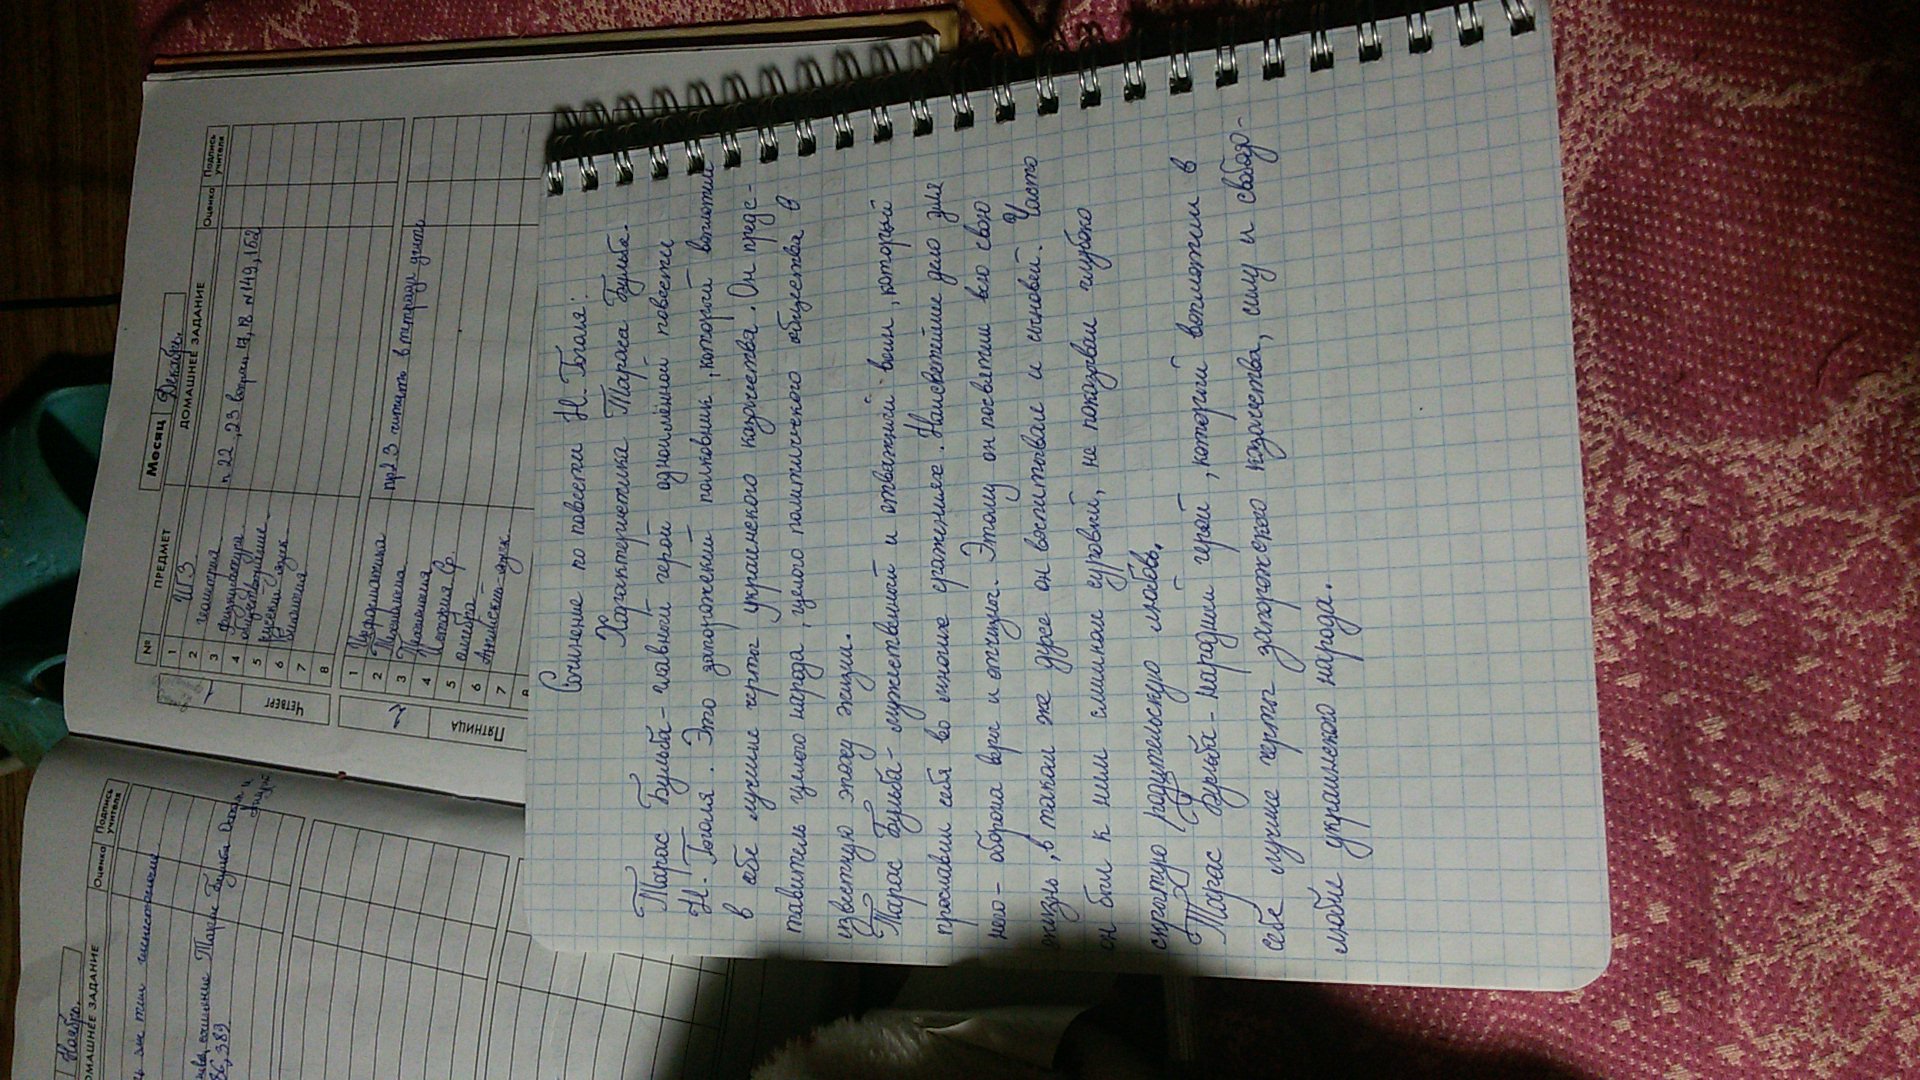 Сочинение по повести Н. Гоголя:
Характеристика Тараса Бульба.
Тарас Бульба - главный герой одноимённой повести
Н. Гоголя. Это запорожский полковник, который воплотил
в себе лучшие черты украинского казачества. Он предс-
тавитель целого народа, целого политического общества в
известную эпоху жизни.
Тарас Бульба - мужественный и отважный воин, который
прославил себя во многих сражениях. Наисветлейшее дело для
него - оборона веры и отчизны. Этому он посвятил всю свою
жизнь, в таком же духе он воспитывал и сыновей. Часто
он был к ним слишком суровый, не показывал глубоко
скрытую родительскую любовь.
Тарас Бульба - народный герой, который воплотил в
себе лучшие черты запорожского казачества, силу и свобод-
любие украинского народа.
Месяц Декабрь
№ ПРЕДМЕТ ДОМАШНЕЕ ЗАДАНИЕ Оценка Подпись учителя
ЧЕТВЕРГ
1
1 ИГЗ
2 геометрия п 22, 23 вопросы 17, 18 № 149, 152
3 физкультура
4 обществознание
5 русский язык
6 биология
7
8
ПЯТНИЦА
2
1 Информатика пр23 читать в тетради учить
2
3
4 История
5 алгебра
6 Английский язык
7
8
Ноябрь
ДОМАШНЕЕ ЗАДАНИЕ Оценка Подпись учителя
сочинение Тарас Бульба Остап и Андрий
86, 389